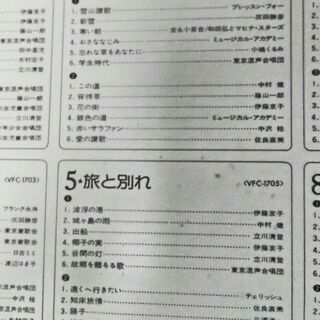 1. 雪山讃歌 プレッスン・フォー
2. 新雪 灰田勝彦
3. 寒い朝 吉永小百合/和田弘とマヒナ・スターズ
4. おさななじみ ミュージカル・アカデミー
5. 忘れな草をあなたに 小鳩くるみ
6. 学生時代 東京混声合唱団
1. この道 中村 健
2. 宵待草 藤山一郎
3. 花の街 伊藤京子
4. 銀色の道 ミュージカル・アカデミー
5. 赤いサラファン 中沢 桂
6. 愛の讃歌 佐良直美
伊藤京子
藤山一郎
東京混声合唱団
田中星児
木村宏子
立川清登
東京混声合唱団
〈VFC-1703〉
フランク永井
灰田勝彦
日吉ミミ
渡辺はま子
中沢 桂
5★旅と別れ 〈VFC-1705〉
1. 波浮の港 伊藤京子
2. 城ヶ島の雨 中村 健
3. 出船 立川清登
4. 椰子の実 伊藤京子
5. 谷間の灯 立川清登
6. 故郷を離るる歌 東京混声合唱団
1. 遠くへ行きたい チェリッシュ
2. 知床旅情 佐良直美
3. 踊子